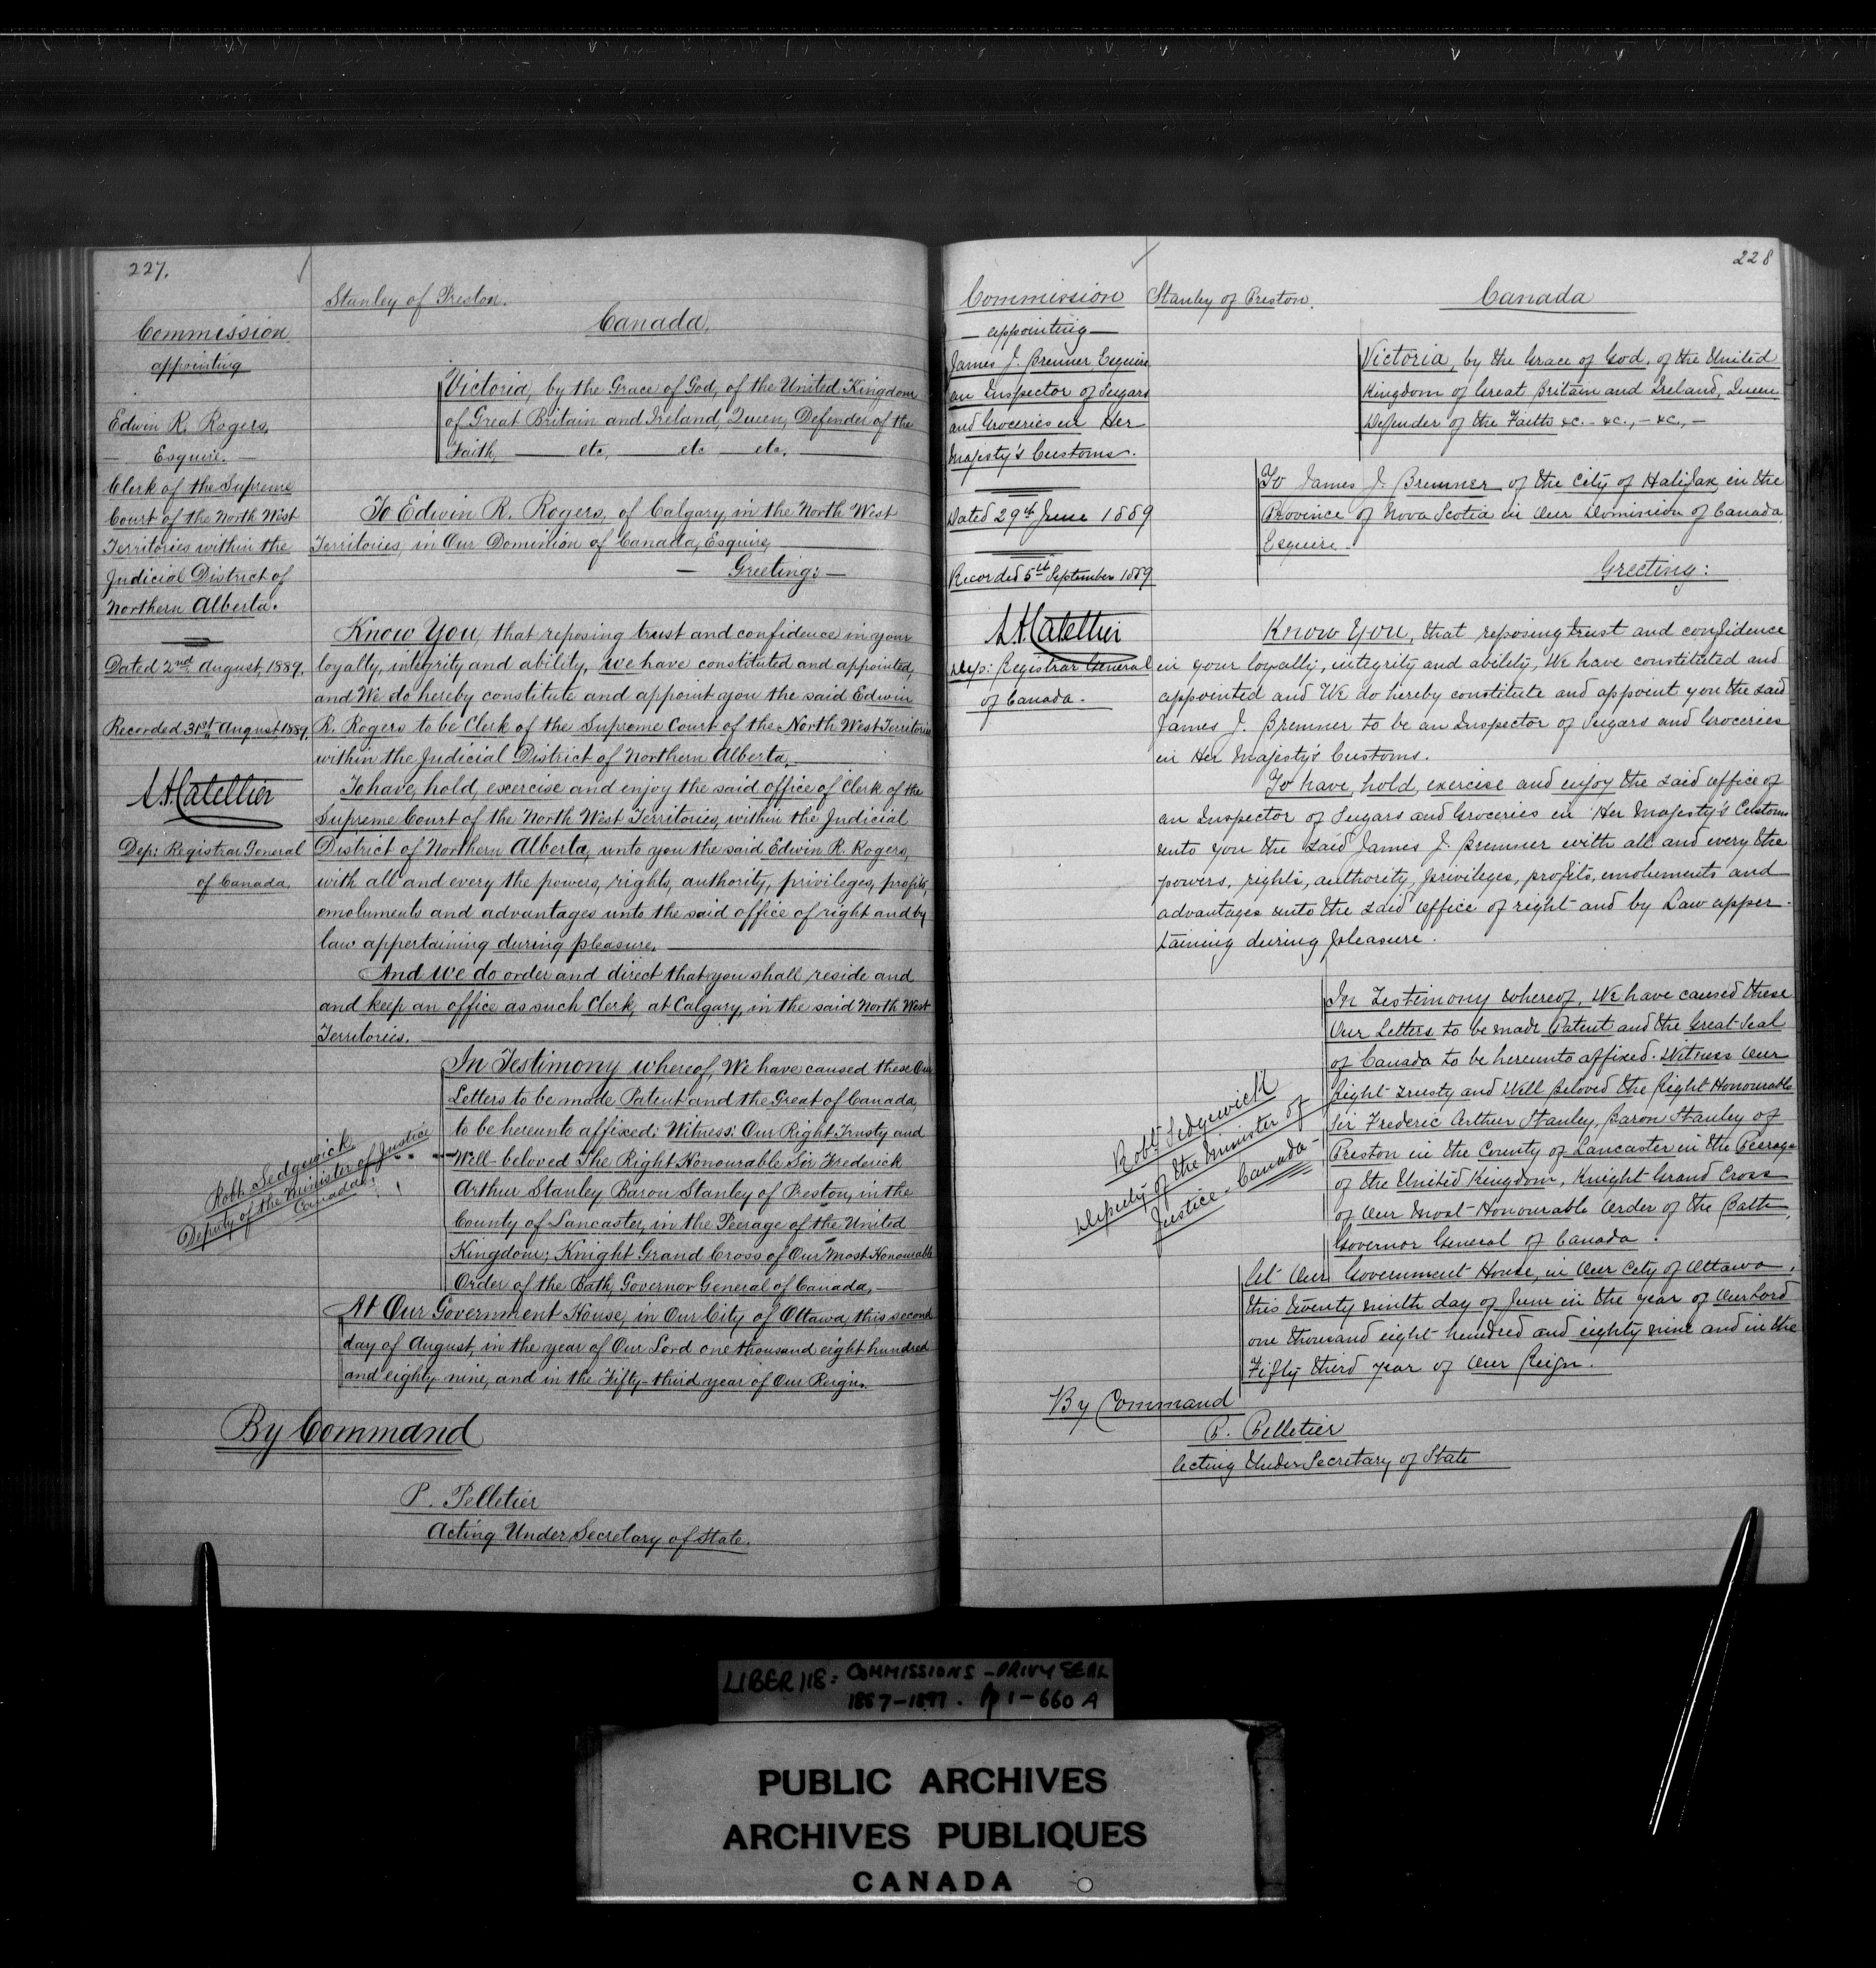 227.
Commission
appointing
Edwin R. Rogers,
— Esquire. —
Clerk of the Supreme
Court of the North West
Territories within the
Judicial District of
Northern Alberta.
Dated 2nd August, 1889.
Recorded 31st August, 1889.
L.A. Catellier
Dep: Registrar General
of Canada.
Stanley of Preston.
Canada.
Victoria, by the Grace of God, of the United Kingdom
of Great Britain and Ireland, Queen, Defender of the
Faith, — etc, — etc — etc. —
To Edwin R. Rogers, of Calgary, in the North West
Territories, in Our Dominion of Canada, Esquire,
— Greeting: —
Know You, that reposing trust and confidence in your
loyalty, integrity and ability, we have constituted and appointed,
and We do hereby constitute and appoint you the said Edwin
R. Rogers to be Clerk of the Supreme Court of the North West Territories
within the Judicial District of Northern Alberta,
To have, hold, exercise and enjoy the said office of Clerk of the
Supreme Court of the North West Territories, within the Judicial
District of Northern Alberta, unto you the said Edwin R. Rogers,
with all and every the powers, rights, authority, privileges, profits,
emoluments and advantages unto the said office of right and by
law appertaining during pleasure.
And We do order and direct that you shall reside and
and keep an office as such Clerk, at Calgary, in the said North West
Territories.
In Testimony whereof, We have caused these Our
Letters to be made Patent and the Great of Canada,
to be hereunto affixed: Witness: Our Right Trusty and
Well-beloved The Right Honourable Sir Frederick
Arthur Stanley Baron Stanley of Preston, in the
County of Lancaster, in the Peerage of the United
Kingdom; Knight Grand Cross of Our Most Honourable
Order of the Bath, Governor General of Canada,
Robt. Sedgewick
Deputy of the Minister of Justice
Canada.
At Our Government House, in Our City of Ottawa, this second
day of August, in the year of Our Lord one thousand eight hundred
and eighty nine, and in the Fifty-third year of Our Reign.
By Command
P. Pelletier
Acting Under Secretary of State.
228
Commission
— appointing —
James J. Bremner Esquire
an Inspector of Sugars
and Groceries in Her
Majesty's Customs.
Dated 29th June 1889
Recorded 5th September 1889
L.A. Catellier
Dep: Registrar General
of Canada.
Stanley of Preston.
Canada
Victoria, by the Grace of God, of the United
Kingdom of Great Britain and Ireland, Queen
Defender of the Faith &c. - &c., - &c., -
To James J. Bremner of the City of Halifax, in the
Province of Nova Scotia in Our Dominion of Canada,
Esquire -
Greeting:
Know You, that reposing trust and confidence
in your loyalty, integrity and ability, We have constituted and
appointed and We do hereby constitute and appoint you the said
James J. Bremner to be an Inspector of Sugars and Groceries
in Her Majesty's Customs.
To have, hold, exercise and enjoy the said office of
an Inspector of Sugars and Groceries in Her Majesty's Customs
unto you the said James J. Bremner with all and every the
powers, rights, authority, privileges, profits, emoluments and
advantages unto the said office of right and by Law apper-
taining during pleasure.
In Testimony whereof, We have caused these
Our Letters to be made Patent and the Great Seal
of Canada to be hereunto affixed. Witness Our
Right Trusty and Well Beloved the Right Honourable
Sir Frederic Arthur Stanley, Baron Stanley of
Preston in the County of Lancaster in the Peerage
of the United Kingdom, Knight Grand Cross
of Our Most Honourable Order of the Bath,
Governor General of Canada.
Robt. Sedgewick
Deputy of the Minister of
Justice - Canada -
At Our Government House, in Our City of Ottawa,
this twenty ninth day of June in the year of Our Lord
one thousand eight hundred and eighty nine and in the
Fifty third year of Our Reign.
By Command
P. Pelletier
Acting Under Secretary of State
LIBER 118: COMMISSIONS - PRIVY SEAL
1887-1897. pp 1-660 A
PUBLIC ARCHIVES
ARCHIVES PUBLIQUES
CANADA